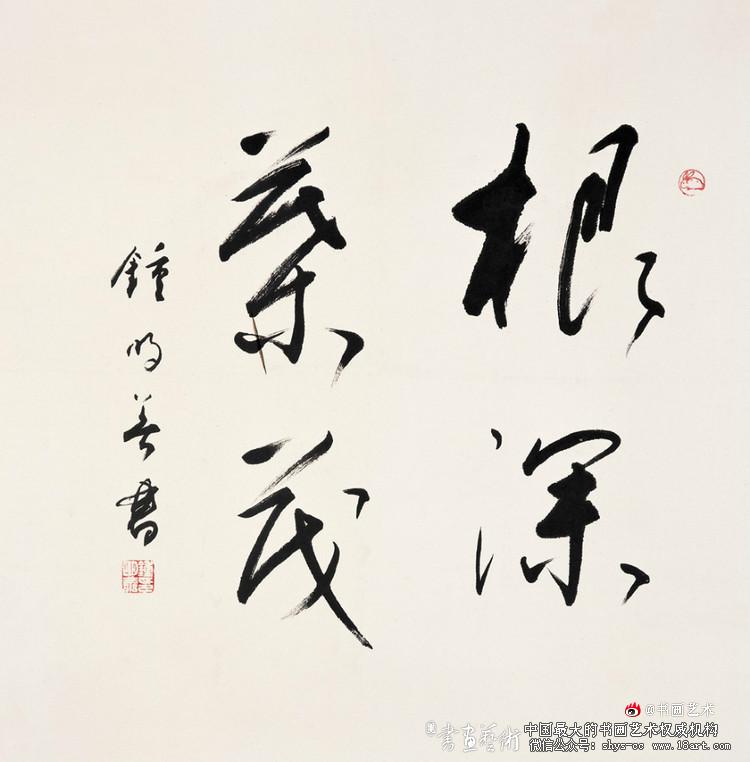 根深
葉茂
鍾明善書
@书画艺术
書畫藝術
中国最大的书画艺术权威机构
微信公众号: shys-cc www.18art.com